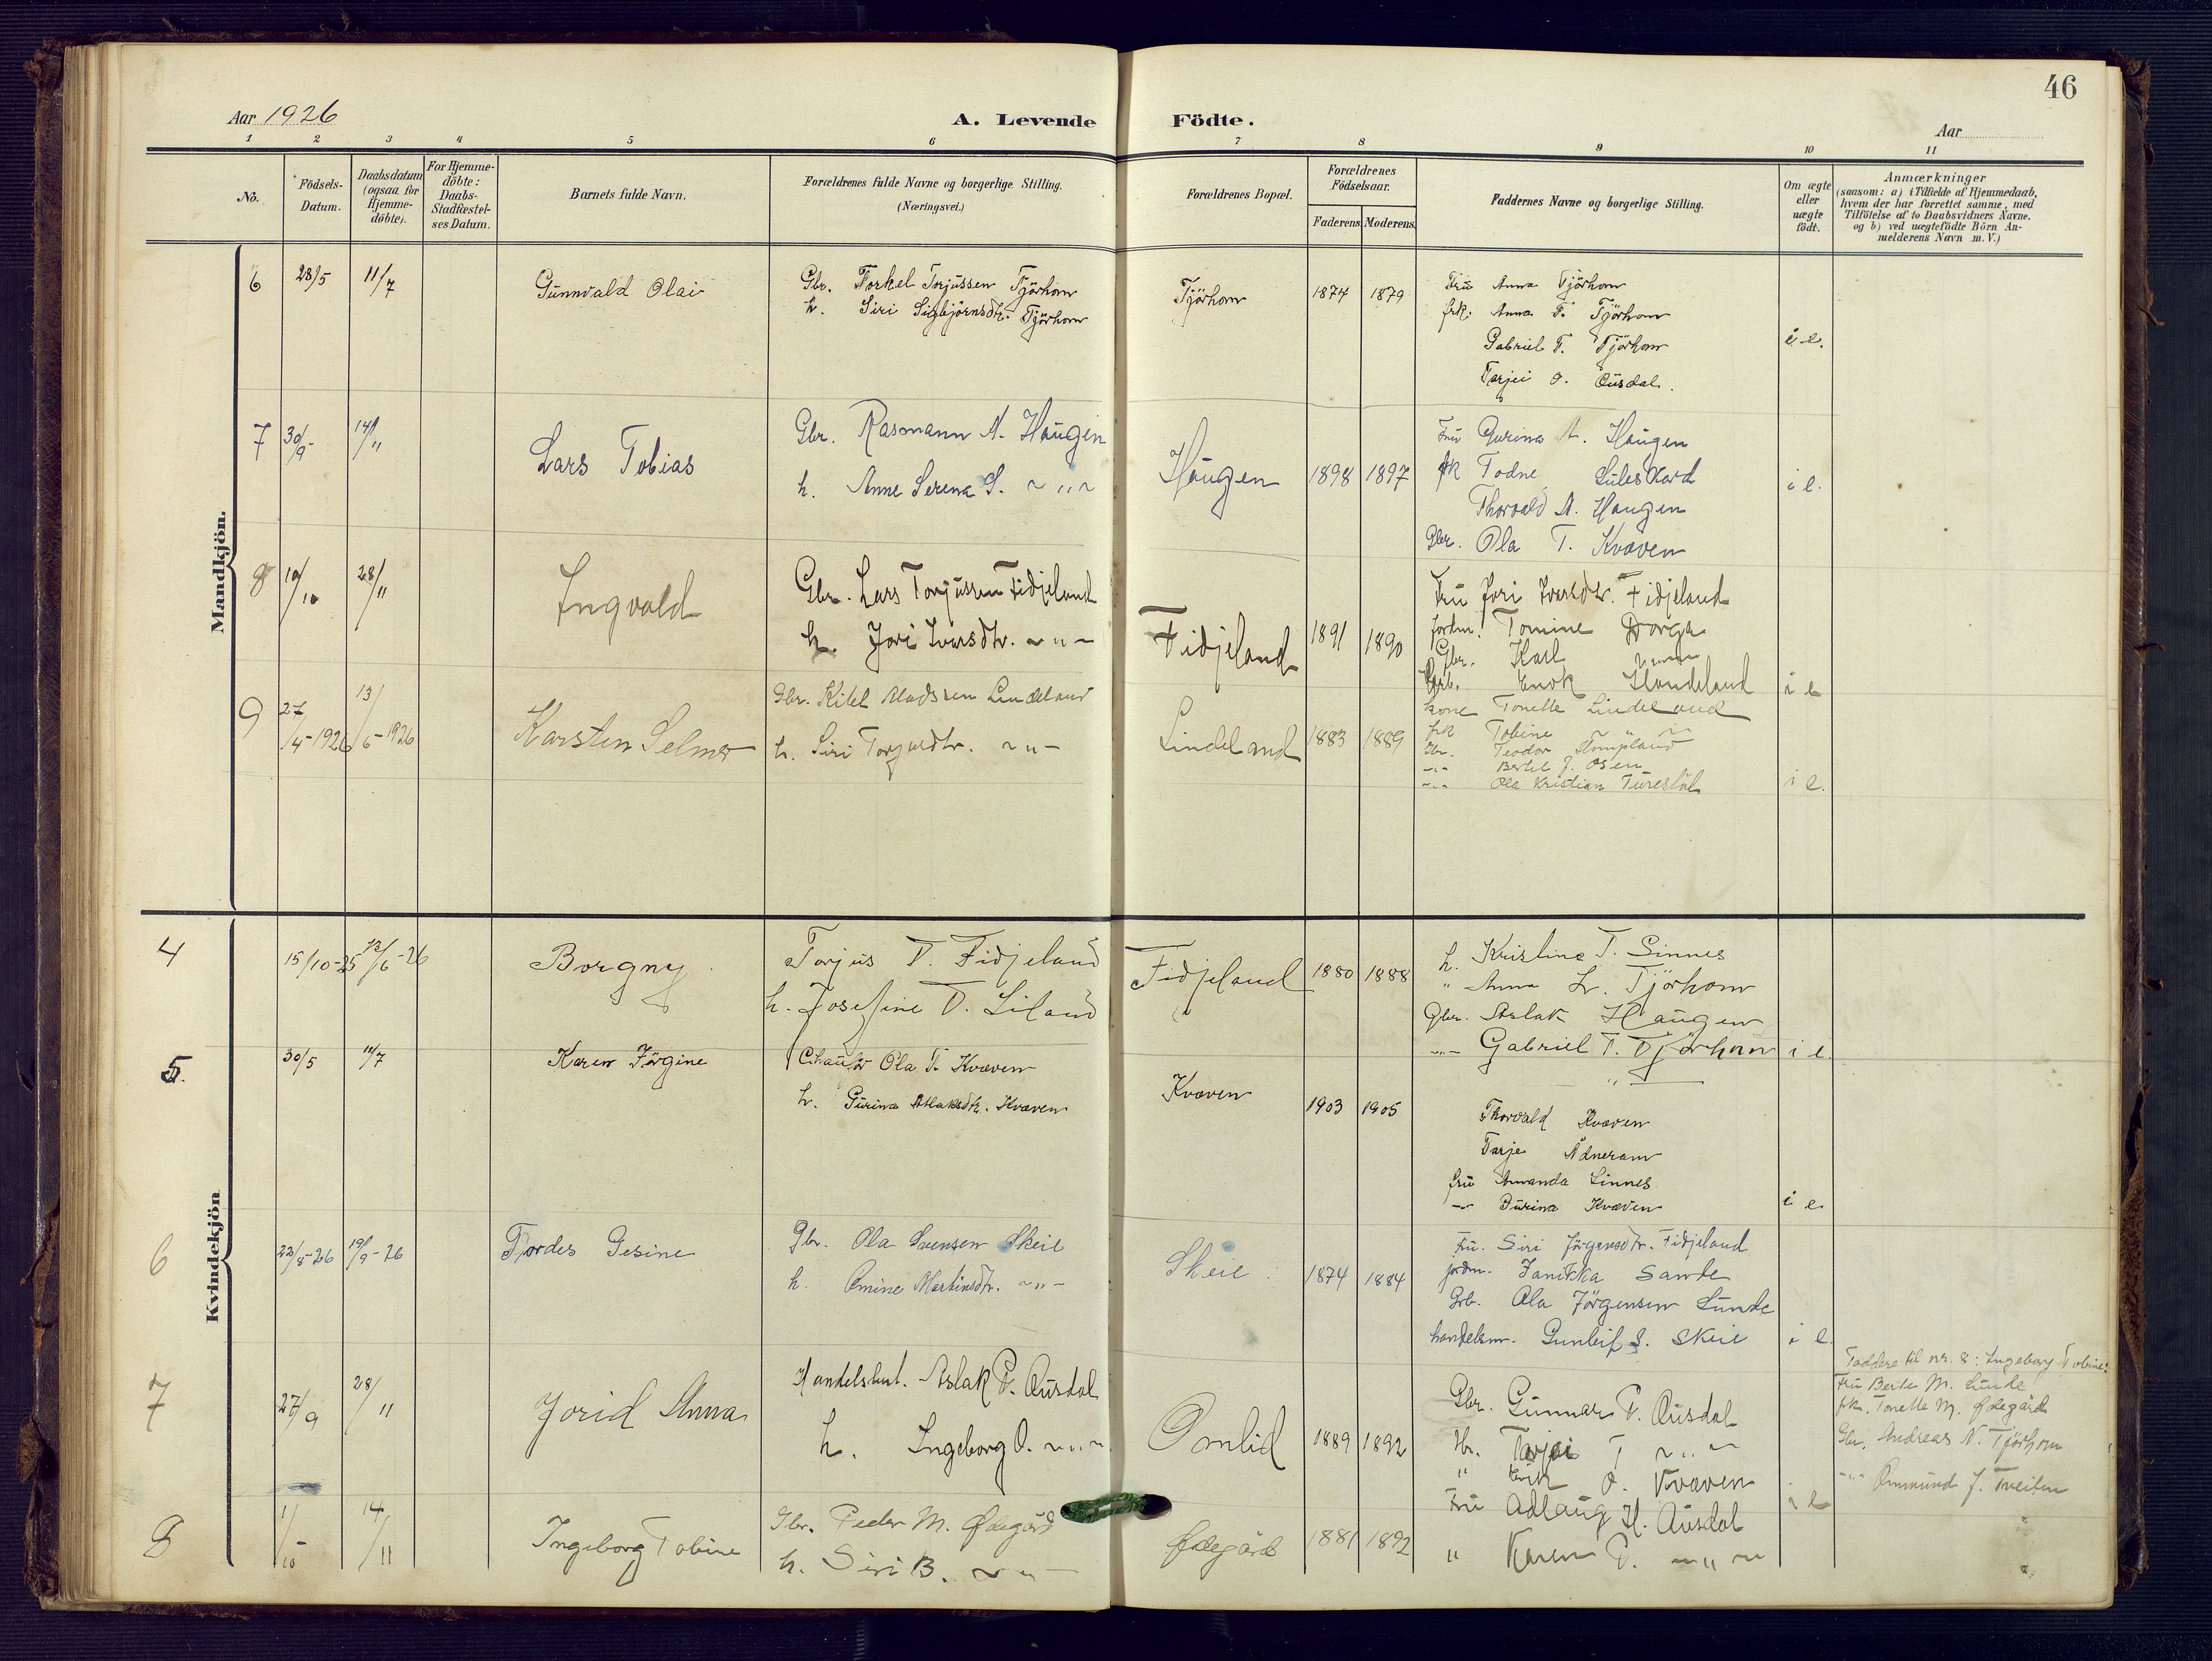 46
Aar 1926
A. Levende Födte.
Aar
1 2 3 4 5 6 7 8 9 10 11
No.
Födsels-Datum.
Daabsdatum (ogsaa for Hjemme-döbte).
For Hjemme-döbte: Daabs-Stadfæstel-ses Datum.
Barnets fulde Navn.
Forældrenes fulde Navne og borgerlige Stilling. (Næringsvei.)
Forældrenes Bopæl.
Forældrenes Födselsaar.
Faderens. Moderens.
Faddernes Navne og borgerlige Stilling.
Om ægte eller uægte födt.
Anmærkninger
(saasom: a) i Tilfælde af Hjemmedaab,
hvem der har forrettet samme, med
Tilföielse af to Daabsvidners Navne.
og b) ved uægtefödte Börn An-
melderens Navn m. V.)
Mandkjön.
6 28/5 11/7 Gunnvald Olai
Gbr. Torkel Torjussen Tjörhom
h. Siri Sigbjörnsdtr. Tjörhom
Tjörhom 1874 1879
Fru Anna Tjörhom
frk. Anna T. Tjörhom
Gabriel T. Tjörhom
Tarjei O. Ousdal.
i e.
7 30/9 14/11 Lars Tobias
Gbr. Rasmann A. Haugen
h. Anne Serena S. ~ " ~
Haugen 1898 1897
Fru Gurina A. Haugen
frk Todne Suleskard
Thorvald A. Haugen
Gbr. Ola T. Kvæven
i e.
8 10/10 28/11 Ingvald
Gbr. Lars Torjussen Fidjeland
h. Jori Iversdtr. ~ " ~
Fidjeland 1891 1890
Fru Jori Iversdtr. Fidjeland
jordm. Tomine Dorga
Gbr. Karl
Grb. Enok Handeland
i e
9 27/4-1926 13/6-1926 Karsten Selmer
Gbr. Kitel Madssen Lindeland
h. Siri Torjusdtr. ~ " ~
Lindeland 1883 1889
kone Tonette Lindeland
frk Tobine ~ " ~
Gbr. Teodor Stompland
-"- Bertel J. Osen
-"- Ola Kristian Turestöl
i e.
Kvindekjön
4 15/10-25 13/6-26 Borgny
Torjus T. Fidjeland
h. Josefine T. Liland
Fidjeland 1880 1888
h. Kristine T. Sinnes
" Anna L. Tjörhom
Gbr. Aslak Haugen
-"- Gabriel T. Tjörhom
i e.
5. 30/5 11/7 Karen Jörgine
Chaufför Ola T. Kvæven
h. Gurina Aslaksdtr. Kvæven
Kvæven 1903 1905
Thorvald Kvæven
Tarje Ådneram
fru Amanda Sinnes
-"- Gurina Kvæven
i e
6 22/8-26 19/9-26 Tjordes Gesine
Gbr. Ola Svensen Skeie
h. Omine Martinsdtr. ~ " ~
Skeie 1874 1884
Fru. Siri Jörgensdtr. Fidjeland
jordm. Janikka Sande
Grb. Ola Jörgensen Lunde
handelsm. Gunleif S. Skeie
i e.
7 27/9 28/11 Jorid Anna
Handelsbest. Aslak P. Ousdal
h. Ingeborg O. ~ " ~
Omlid 1889 1892
Gbr. Gunnar P. Ousdal
Gbr. Tarjei T ~ " ~
" Erik O. Kvæven
Fru Adlaug H. Ousdal
" Karen P. ~ " ~
i e
8 1/10 14/11 Ingeborg Tobine
Gbr. Peder M. Ødegård
h. Siri B. ~ " ~
Ødegård 1881 1892
Faddere til nr. 8: Ingeborg Tobine:
Fru Berte M. Lunde
frk. Tonette M. Ødegård
Gbr. Andreas N. Tjörhom
-"- Ommund J. Tveiten